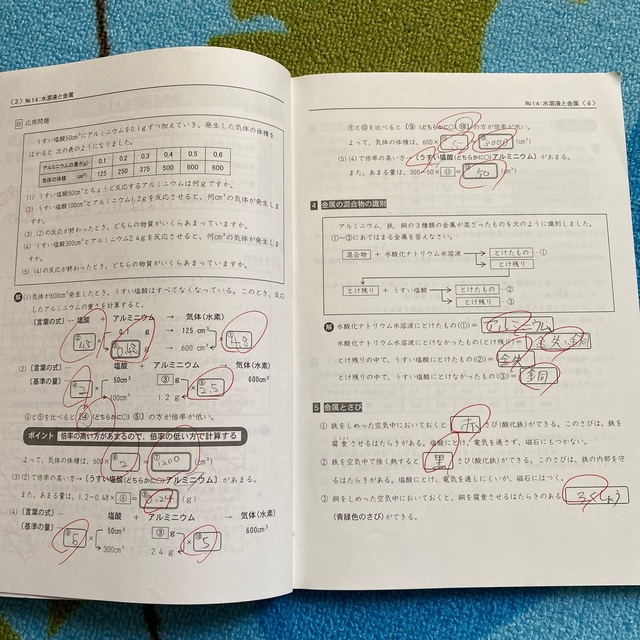 〈3〉№14:水溶液と金属
応用問題
うすい塩酸50cm³にアルミニウムを0.1gずつ加えていき、発生した気体の体積を
はかると 次の表のようになりました。
アルミニウムの重さ(g) 0.1 0.2 0.3 0.4 0.5 0.6
気体の体積 (cm³) 125 250 375 500 600 600
(1) うすい塩酸50cm³とちょうど反応するアルミニウムは何gですか。
(2) うすい塩酸100cm³とアルミニウム1.2gを反応させると、何cm³の気体が発生しますか。
(3) (2)の反応が終わったとき、どちらの物質がいくらあまっていますか。
(4) うすい塩酸300cm³とアルミニウム2.4gを反応させると、何cm³の気体が発生しますか。
(5) (4)の反応が終わったとき、どちらの物質がいくらあまっていますか。
解 (1) 気体が600cm³発生したとき、うすい塩酸はすべてなくなっている。このとき、反応
したアルミニウムの重さを計算すると、
[言葉の式]… 塩酸 + アルミニウム → 気体(水素)
0.1 g → 125 cm³
② 4.8 × ③ 0.48 g → 600 cm³ × ① 4.8
(2) [言葉の式]… 塩酸 + アルミニウム → 気体(水素)
[基準の量]… 50cm³ ③ g 600cm³
④ 2 × 100cm³ 1.2 g × ⑤ 2.5
④と⑤を比べると【④ (どちらかに○) ⑤】の方が倍率が低い。
ポイント 倍率の高い方があまるので、倍率の低い方で計算する
よって、気体の体積は、600× ⑥ 2 = ⑦ 1200 (cm³)
(3) (2)で倍率が高い方→【うすい塩酸(どちらかに○)アルミニウム】があまる。
また、あまる量は、1.2-0.48× ⑥ = ⑧ 0.24 (g)
(4) [言葉の式]… 塩酸 + アルミニウム → 気体(水素)
[基準の量]… 50cm³ ③ g 600cm³
⑨ 6 × 300cm³ 2.4 g × ⑩ 5
№14:水溶液と金属〈4〉
⑨と⑩を比べると【⑨ (どちらかに○) ⑩】の方が倍率が低い。
よって、気体の体積は、600× 5 = 3000 (cm³)
(5) (4)で倍率の高い方→【うすい塩酸(どちらかに○)アルミニウム】があまる。
また、あまる量は、300-50× ⑪ = 50 (cm³)
4 金属の混合物の識別
アルミニウム、鉄、銅の3種類の金属が混ざったものを次のように識別しました。
①~③にあてはまる金属を答えなさい。
混合物 + 水酸化ナトリウム水溶液 → とけたもの …①
→ とけ残り
とけ残り + うすい塩酸 → とけたもの …②
→ とけ残り …③
解 水酸化ナトリウム水溶液にとけたもの(①)= アルミニウム
水酸化ナトリウム水溶液にとけなかったもの(とけ残り)= 鉄、銅
とけ残りの中で、うすい塩酸にとけたもの(②)= 鉄
とけ残りの中で、うすい塩酸にとけなかったもの(③)= 銅
5 金属とさび
① 鉄をしめった空気中においておくと 赤 さび(酸化鉄)ができる。このさびは、鉄を
腐食させるはたらきがある。塩酸にとけ、電気を通さず、磁石にもつかない。
② 鉄を空気中で強く熱すると 黒 さび(酸化鉄)ができる。このさびは、鉄の内部を守
るはたらきがある。塩酸にとけ、電気を通しにくいが、磁石につく。
③ 銅をしめった空気中においておくと、銅を腐食させるはたらきのある ろくしょう
(青緑色のさび)ができる。